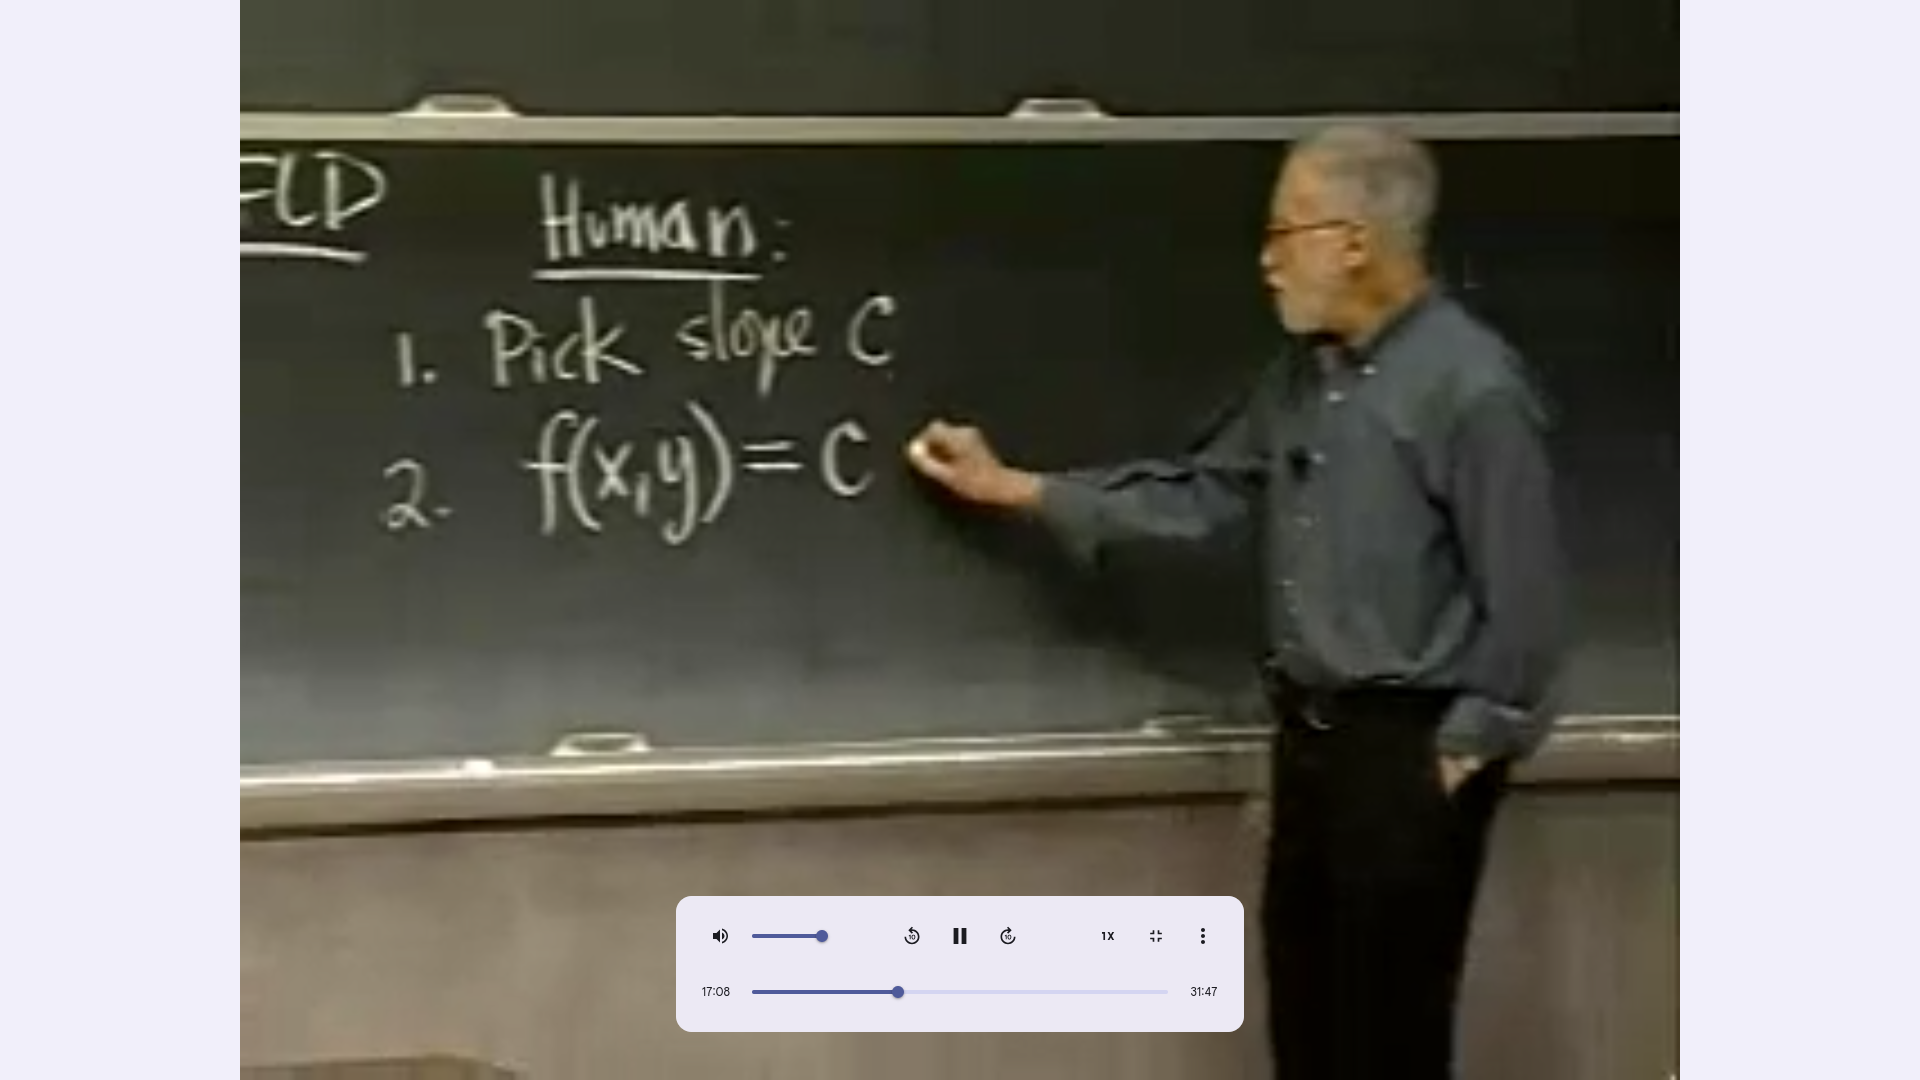 FLD
Human:
1. Pick slope C
2. f(x,y) = C
1X
17:08
31:47